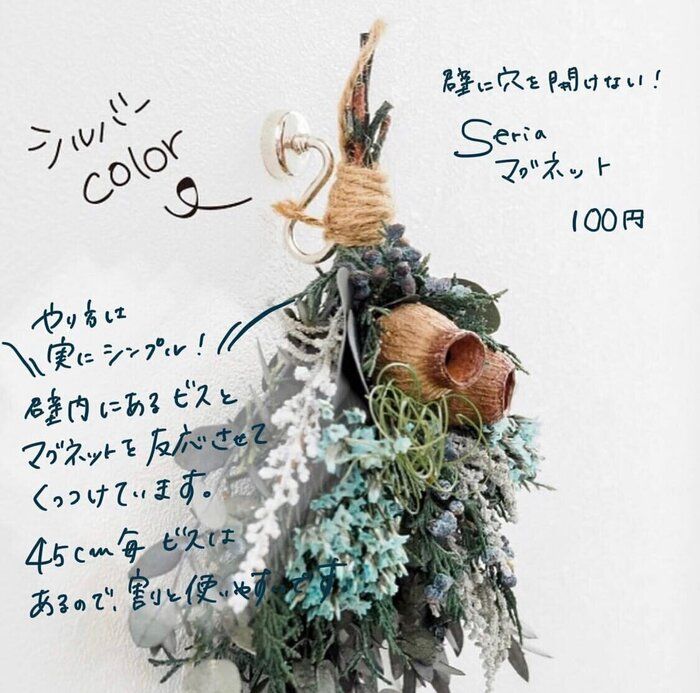 シルバー
color
壁に穴を開けない！
Seria
マグネット
100円
やり方は
実にシンプル！
壁内にあるビスと
マグネットを反応させて
くっつけています。
45cm毎ビスは
あるので、割と使いやすいです